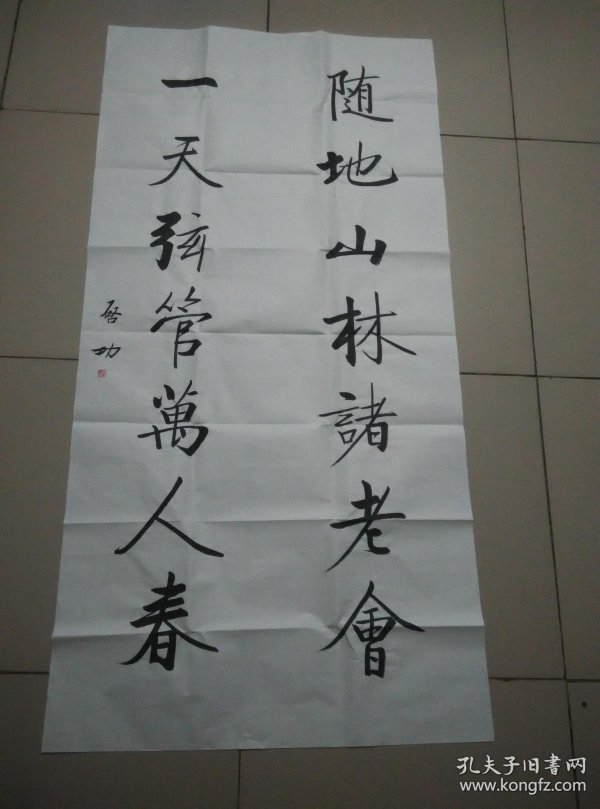 随地山林諸老會
一天弦管萬人春
啓功
孔夫子旧書网
www.kongfz.com